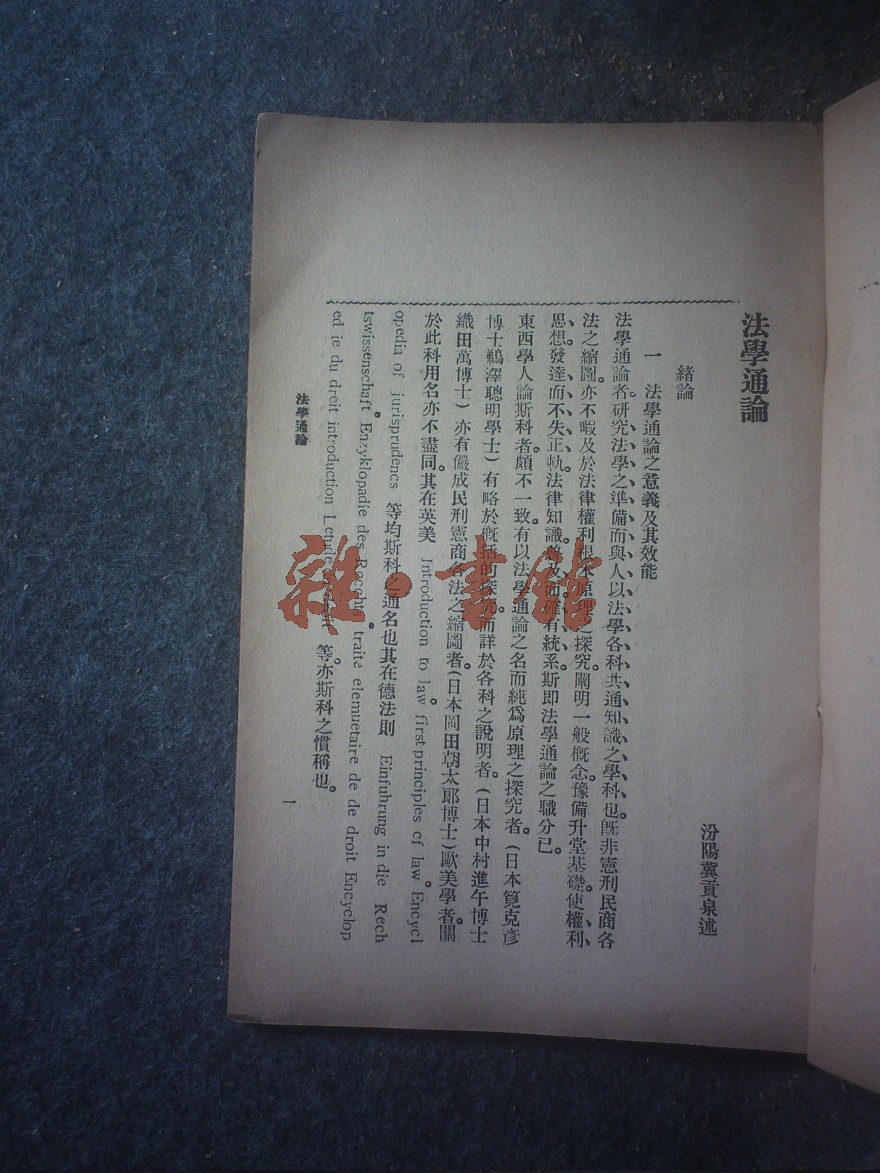 法學通論
汾陽冀貢泉述
緒論
一　法學通論之意義及其效能
法學通論者。研究法學之準備而與人以法學各科共通知識之學科也。既非憲刑民商各
法之縮圖。亦不暇及於法律權利根本原理之探究。闡明一般概念。豫備升堂基礎。使權利
思想發達而不失正軌。法律知識普及而確有統系。斯即法學通論之職分已。
東西學人論斯科者。頗不一致。有以法學通論之名而純爲原理之探究者。(日本筧克彥
博士鵜澤聰明學士)有略於概括的探究而詳於各科之說明者。(日本中村進午博士
織田萬博士)亦有儼成民刑憲商各法之縮圖者(日本岡田朝太郎博士)歐美學者。關
於此科用名亦不盡同。其在英美 Introduction to law。first principles cf law。Encycl
opedia of jurisprudencs 等均斯科之通名也其在德法則 Einfuhrung in die Rech
tswissenschaft。Enzyklopadie des Rocchts。traite elemuetaire de de droit Encyclop
ed ie du dreit introduction Letude 等。亦斯科之慣稱也。
法學通論
1
雜·書館